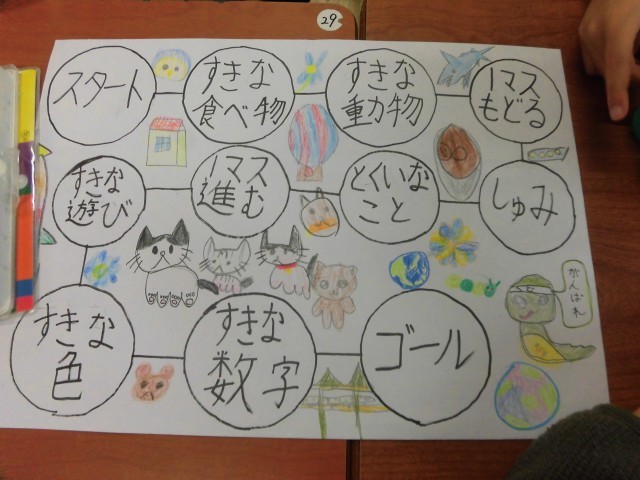 29
スタート
すきな
食べ物
すきな
動物
1マス
もどる
しゅみ
とくいな
こと
1マス
進む
すきな
遊び
すきな
色
すきな
数字
ゴール
がんばれ